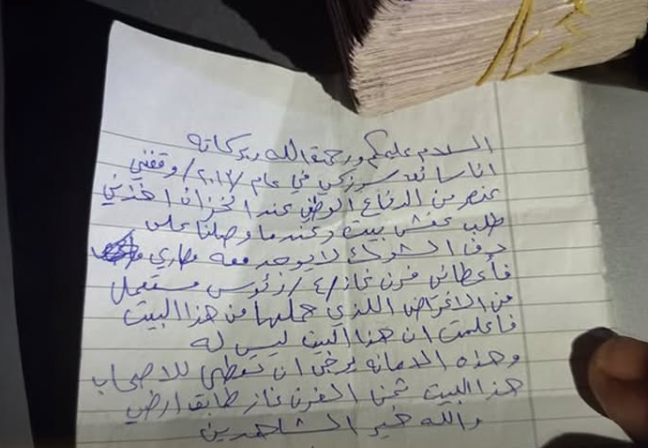 السلام عليكم ورحمة الله وبركاته
انا سائق سوزكي في عام /٢٠١٣/ وقفني
عنصر من الدفاع الوطني عند الخزان اخذني
طلب عفش بيت وعندما وصلنا على
دف الشوك لا يوجد معه مصاري
فأعطاني فرن غاز /٤/ رؤوس مستعمل
من الاغراض اللذي حملها من هذا البيت
فأعلمت ان هذا البيت ليس له
وهذه الامانه يرجى ان تعطى للاصحاب
هذا البيت ثمن الفرن غاز طابق ارضي
والله خير الشاهدين